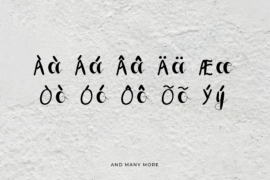 Àà Áá Ââ Ää Ææ
Òò Óó Ôô Õõ Ýý
AND MANY MORE